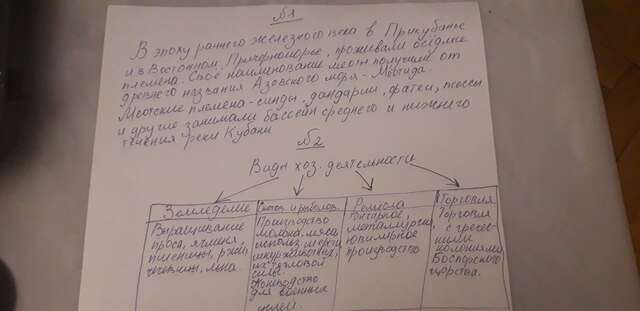 №1
В эпоху раннего железного века в Прикубанье
и в Восточном Причерноморье, проживали оседлые
племена. Своё наименование меоты получили от
древнего названия Азовского моря - Меотида.
Меотские племена - синды, дандарии, фатеи, псессы
и другие занимали бассейн среднего и нижнего
течения реки Кубани
№2
Виды хоз. деятельности
Земледелие
Выращивание
проса, ячменя,
пшеницы, ржи,
чечевицы, льна.
Скотов. и рыболов.
Производство
молока, мяса,
использ. шерсти
шкур животных,
тягловой
силы.
Коневодство
для военных
целей.
Ремесла
Гончарное,
металлургич.
ювелирное
производство
Торговля
Торговля
с гречес-
кими
колониями
Боспорского
царства.